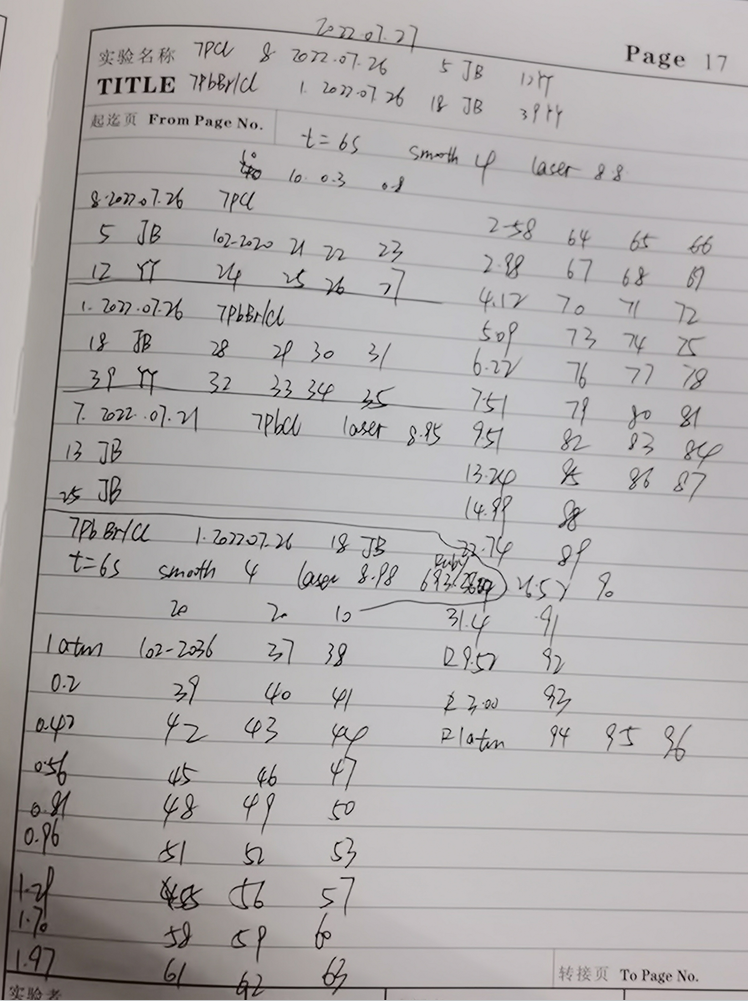 2022.07.27
实验名称 7PCl 8 2022.07.26 5 JB 12YY Page 17
TITLE 7PbBr/Cl 1. 2022.07.26 18 JB 39YY
起迄页 From Page No.
t=6s smooth 4 laser 8.8
10 10. 0.3 0.8
8.2022.07.26 7PCl
5 JB 102-2020 21 22 23
12 YY 24 25 26 27
1. 2022.07.26 7PbBr/Cl
18 JB 28 29 30 31
39 YY 32 33 34 35
7. 2022.07.21 7PbCl laser 8.95
13 JB
25 JB
7PbBr/Cl 1.2022.07.26 18 JB
t=6s smooth 4 laser 8.98 Ruby
20 20 10
1atm 102-2036 37 38
0.2 39 40 41
0.47 42 43 44
0.56 45 46 47
0.81 48 49 50
0.96 51 52 53
1.29 55 56 57
1.70 58 59 60
1.97 61 62 63
2.58 64 65 66
2.98 67 68 69
4.12 70 71 72
5.09 73 74 75
6.22 76 77 78
7.51 79 80 81
9.51 82 83 84
13.24 85 86 87
14.99 88
22.74 89
26.52 90
31.4 91
R 9.52 92
R 3.00 93
R 1atm 94 95 96
转接页 To Page No.
实验者